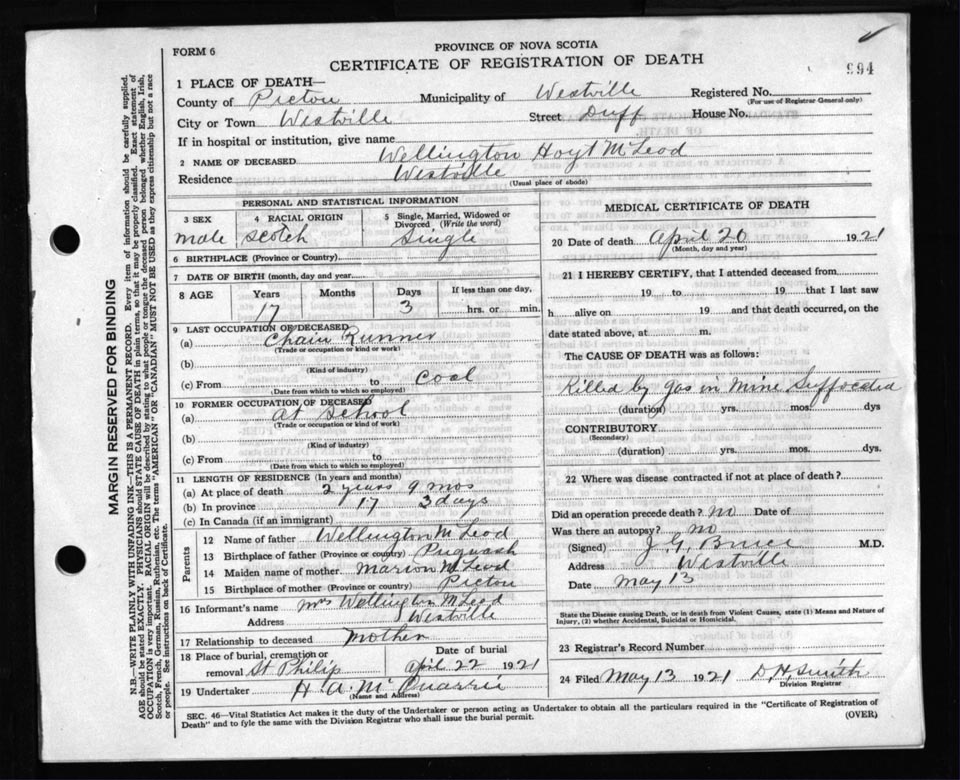 PROVINCE OF NOVA SCOTIA
FORM 6
CERTIFICATE OF REGISTRATION OF DEATH
994
1 PLACE OF DEATH—
County of Pictou Municipality of Westville Registered No.
(For use of Registrar General only)
City or Town Westville Street Duff House No.
If in hospital or institution, give name
2 NAME OF DECEASED Wellington Hoyt McLeod
Residence Westville
(Usual place of abode)
PERSONAL AND STATISTICAL INFORMATION
3 SEX 4 RACIAL ORIGIN 5 Single, Married, Widowed or Divorced (Write the word)
male scotch Single
6 BIRTHPLACE (Province or Country)
7 DATE OF BIRTH (month, day and year)
8 AGE Years Months Days If less than one day,
17 3 hrs. or min.
9 LAST OCCUPATION OF DECEASED
(a) Chain Runner
(Trade or occupation or kind of work)
(b)
(Kind of industry)
(c) From to Coal
(Date from which to which employed)
10 FORMER OCCUPATION OF DECEASED
(a) at School
(Trade or occupation or kind of work)
(b)
(Kind of industry)
(c) From to
(Date from which to which employed)
11 LENGTH OF RESIDENCE (In years and months)
(a) At place of death 2 years 9 mos
(b) In province 17 3 days
(c) In Canada (if an immigrant)
Parents
12 Name of father Wellington McLeod
13 Birthplace of father (Province or country) Pugwash
14 Maiden name of mother Marion McLeod
15 Birthplace of mother (Province or country) Pictou
16 Informant's name Mrs Wellington McLeod
Address Westville
17 Relationship to deceased Mother
18 Place of burial, cremation or removal St Philip Date of burial April 22 1921
19 Undertaker H A McQuarrie
(Name and Address)
MEDICAL CERTIFICATE OF DEATH
20 Date of death April 20 1921
(Month, day and year)
21 I HEREBY CERTIFY, that I attended deceased from
19 to 19 that I last saw
h alive on 19 and that death occurred, on the
date stated above, at m.
The CAUSE OF DEATH was as follows:
Killed by gas in mine Suffocated
(duration) yrs. mos. dys
CONTRIBUTORY
(Secondary)
(duration) yrs. mos. dys.
22 Where was disease contracted if not at place of death?
Did an operation precede death? No Date of
Was there an autopsy? no
(Signed) J. G. Bruce M.D.
Address Westville
Date May 13
State the Disease causing Death, or in death from Violent Causes, state (1) Means and Nature of
Injury, (2) whether Accidental, Suicidal or Homicidal.
23 Registrar's Record Number
24 Filed May 13 1921 D. H. Smith
Division Registrar
SEC. 46—Vital Statistics Act makes it the duty of the Undertaker or person acting as Undertaker to obtain all the particulars required in the "Certificate of Registration of
Death" and to fyle the same with the Division Registrar who shall issue the burial permit.
(OVER)
MARGIN RESERVED FOR BINDING
N.B.—WRITE PLAINLY WITH UNFADING INK—THIS IS A PERMANENT RECORD. Every item of information should be carefully supplied.
AGE should be stated EXACTLY. PHYSICIANS should STATE CAUSE OF DEATH in plain terms, so that it may be properly classified. Exact statement of
OCCUPATION is very important. RACIAL ORIGIN will be described by stating to what people or tongue the deceased person belonged whether English, Irish,
Scotch, French, German, Russian, Ruthenian, etc. The terms "AMERICAN" OR "CANADIAN" MUST NOT BE USED as they express citizenship but not a race
or people. See instructions on back of Certificate.